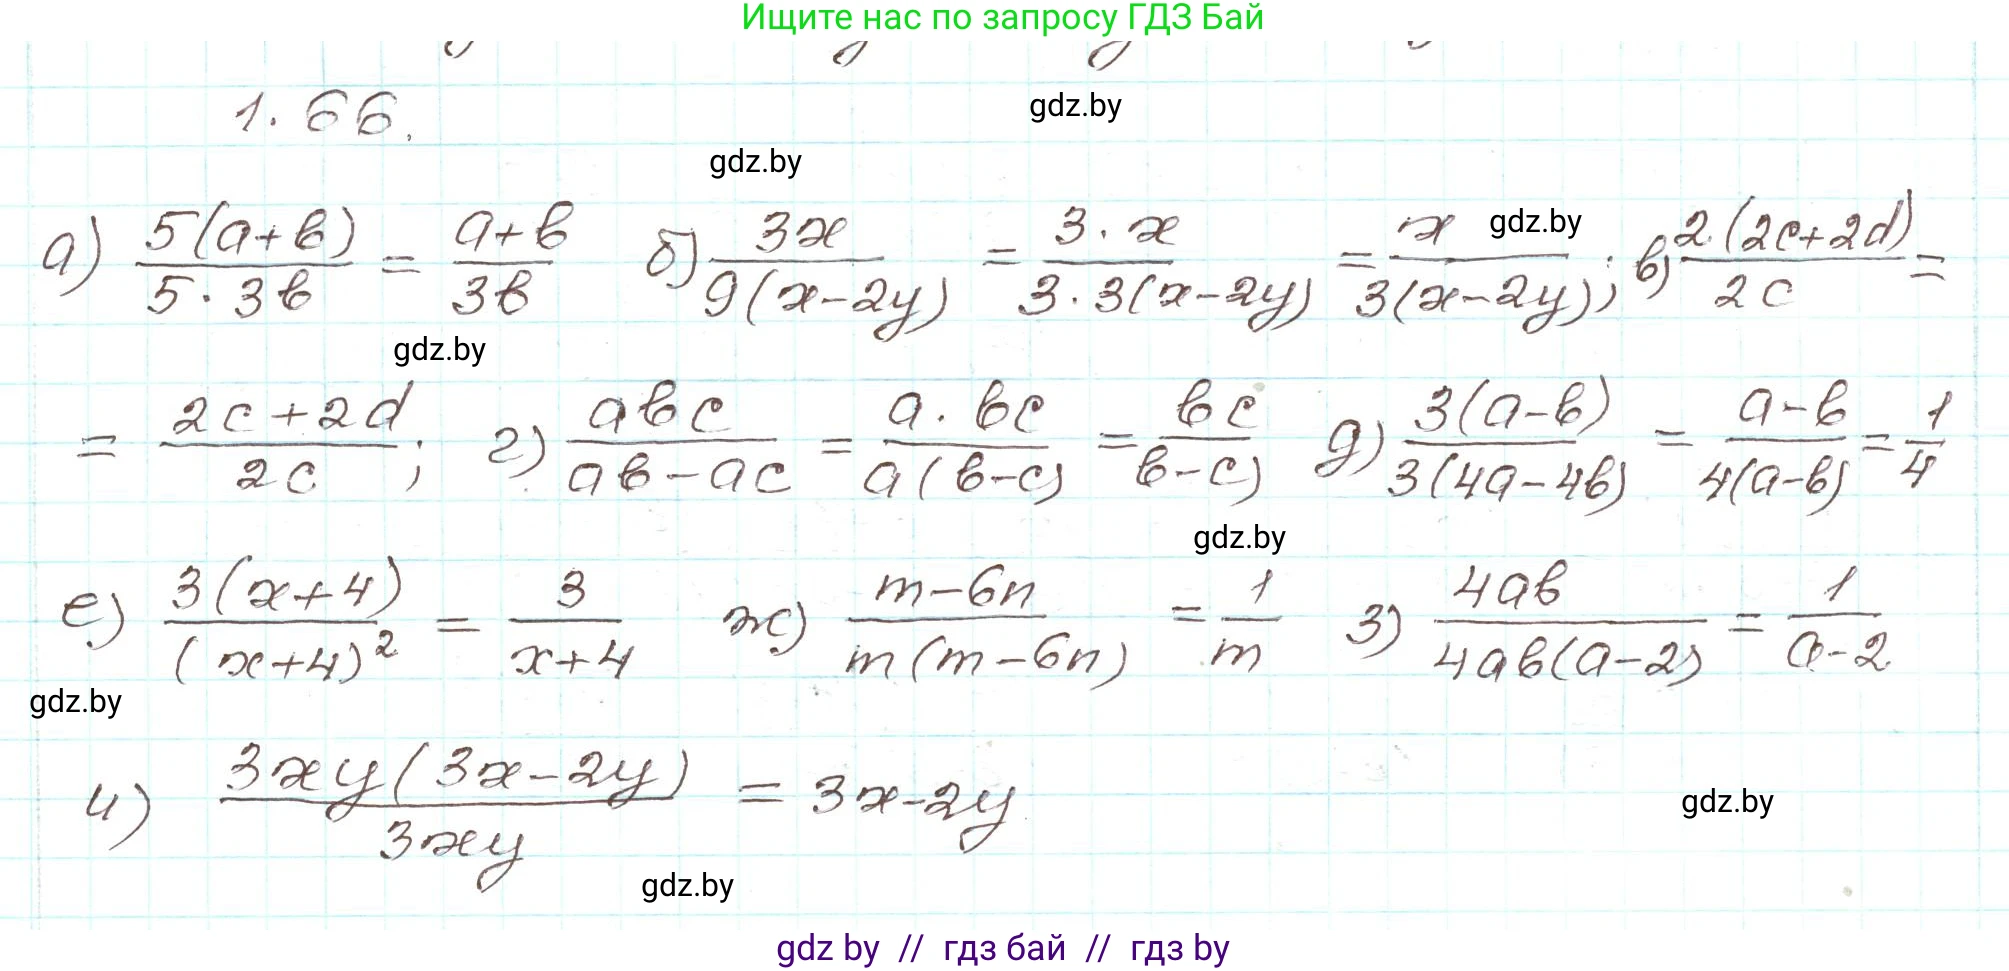 Ищите нас по запросу ГДЗ Бай
1.66.
gdz.by
gdz.by
а) 5(a+b)/(5·3b) = (a+b)/(3b) б) 3x/(9(x-2y)) = 3·x/(3·3(x-2y)) = x/(3(x-2y)); gdz.by в) 2·(2c+2d)/(2c) =
gdz.by
= (2c+2d)/(2c); г) abc/(ab-ac) = a·bc/(a(b-c)) = bc/(b-c) д) 3(a-b)/(3(4a-4b)) = (a-b)/(4(a-b)) = 1/4
gdz.by
е) 3(x+4)/(x+4)² = 3/(x+4) ж) (m-6n)/(m(m-6n)) = 1/m з) 4ab/(4ab(a-2)) = 1/(a-2)
gdz.by
и) 3xy(3x-2y)/(3xy) = 3x-2y
gdz.by
gdz.by
gdz by // гдз бай // гдз by